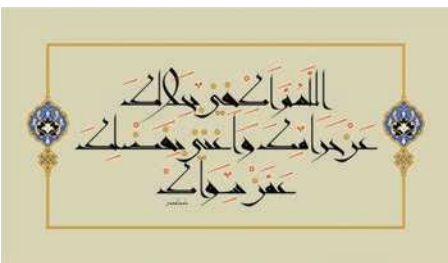 اللهم اكفني بحلالك
عن حرامك واغنني بفضلك
عمن سواك